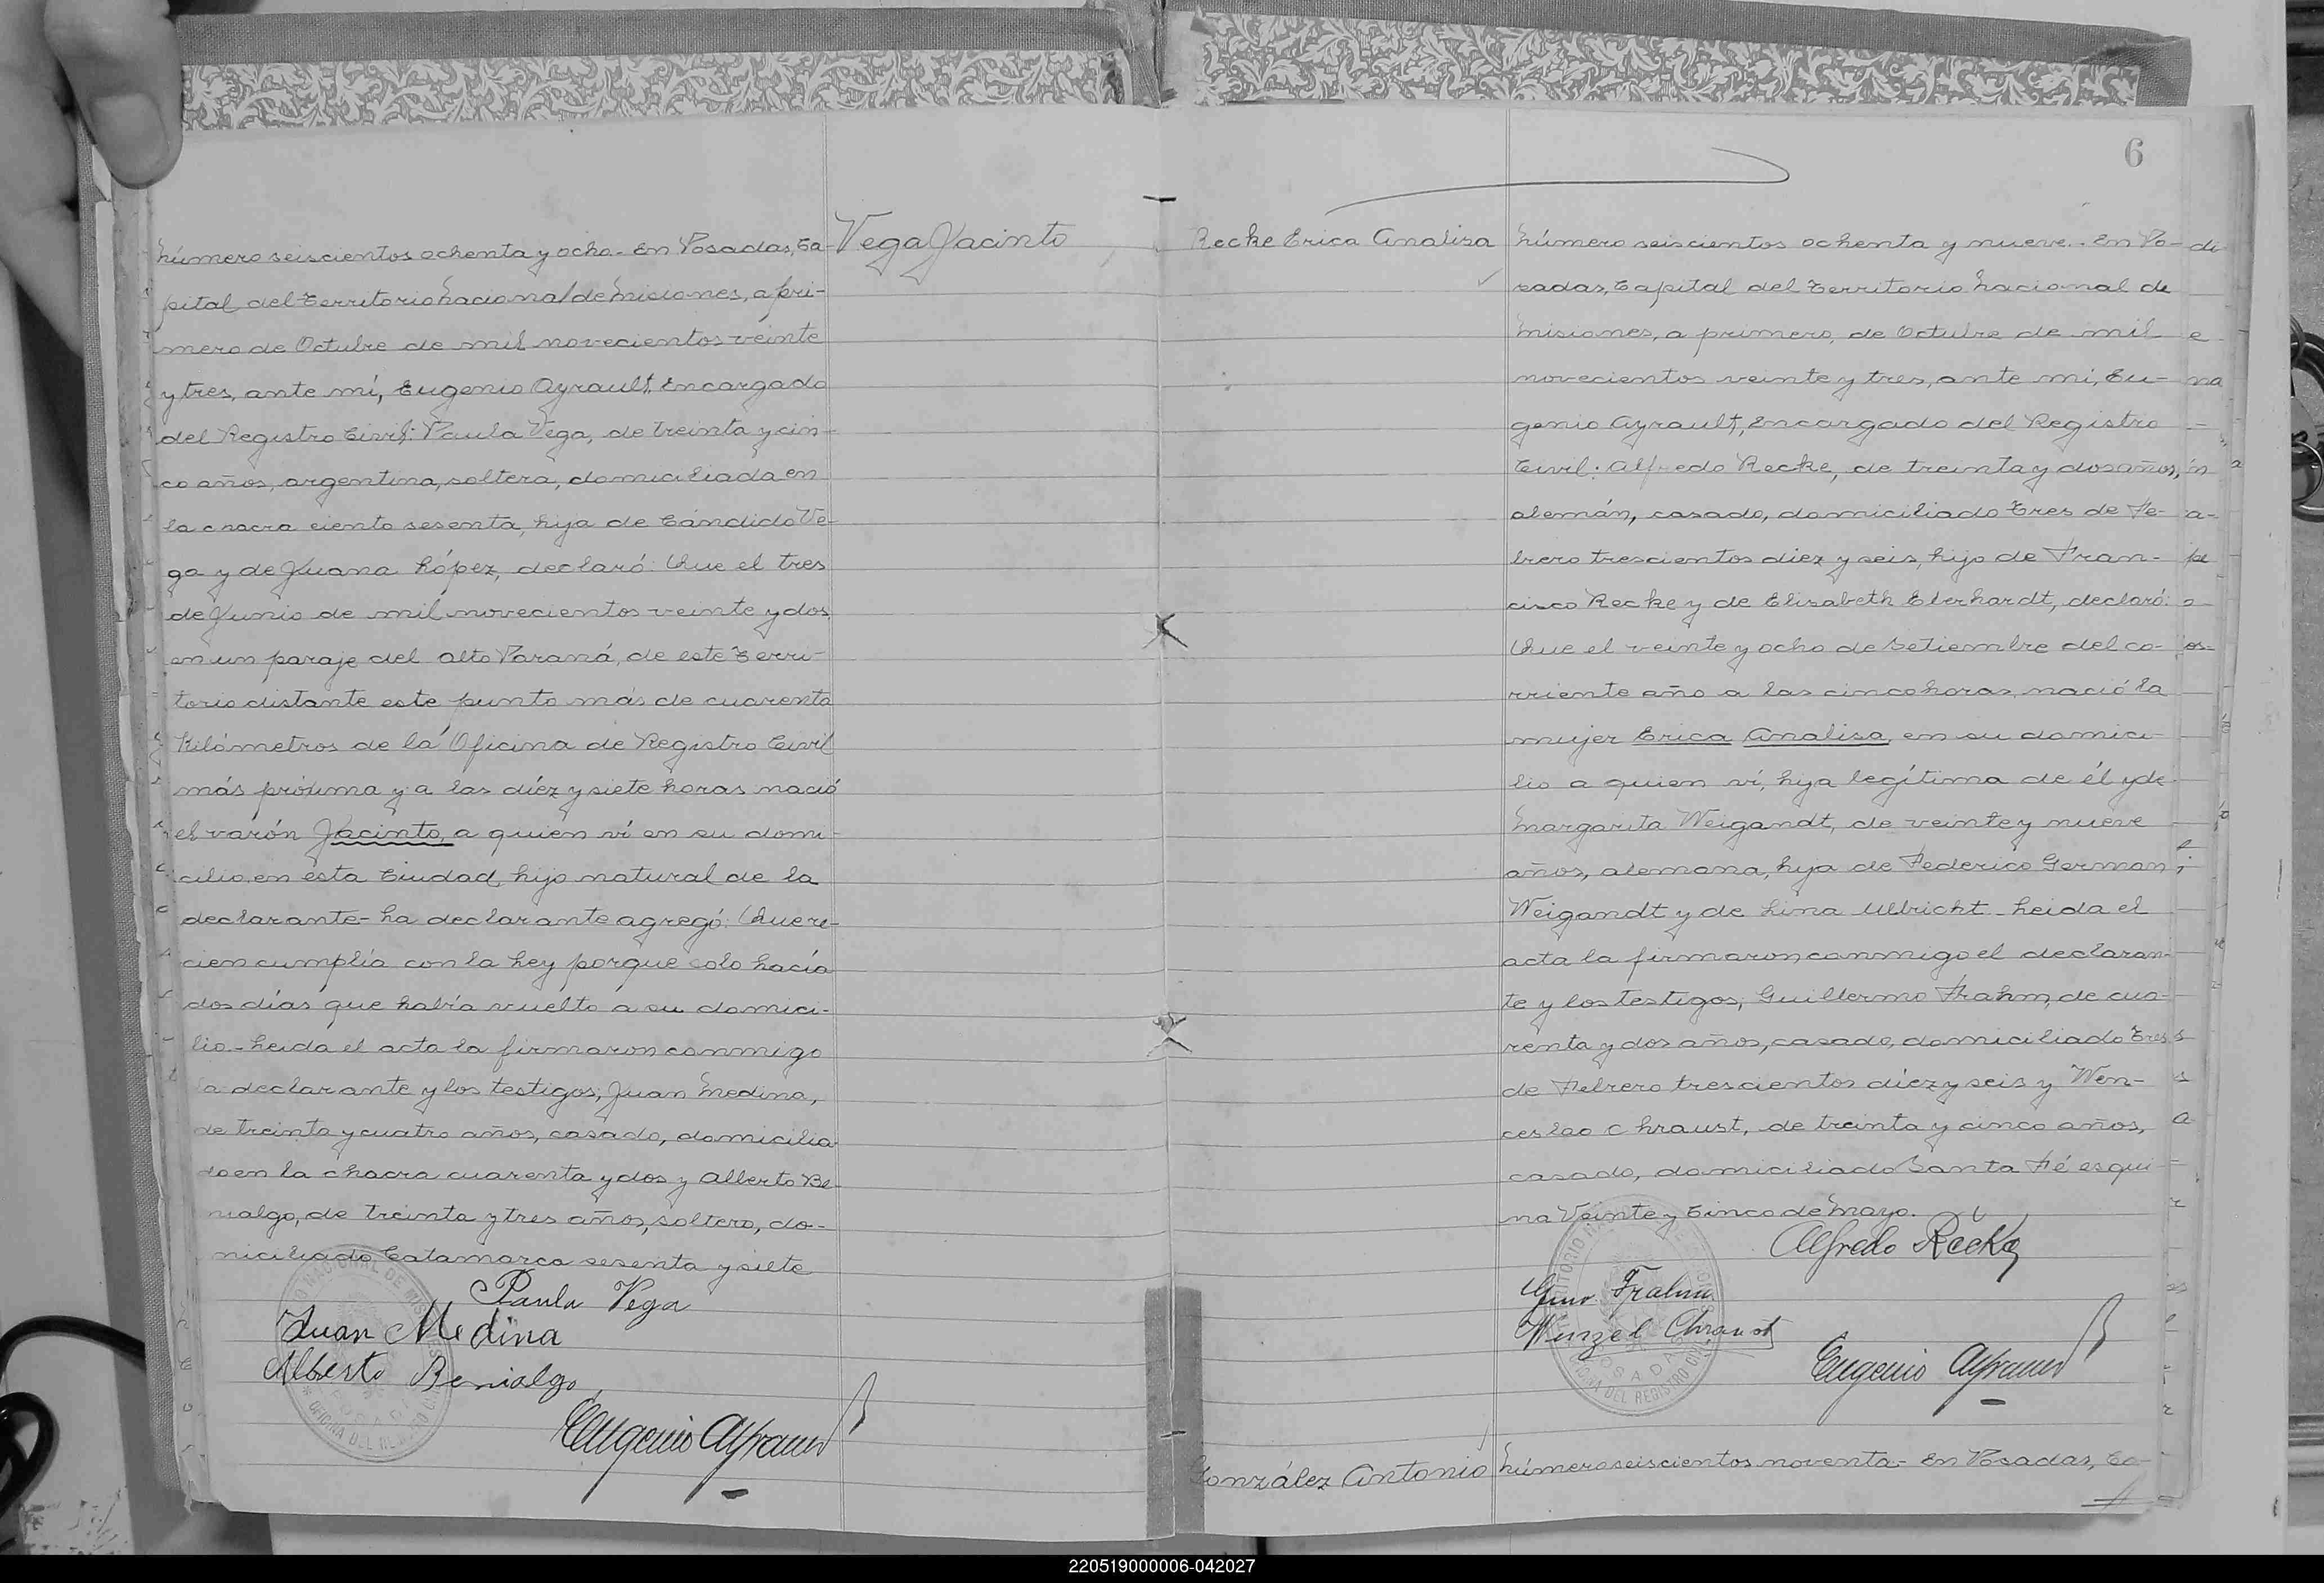 Número seiscientos ochenta y ocho.- En Posadas, Ca-
pital del Territorio Nacional de Misiones, a pri-
mero de Octubre de mil novecientos veinte
y tres, ante mí, Eugenio Ayrault, Encargado
del Registro Civil: Paula Vega, de treinta y cin-
co años, argentina, soltera, domiciliada en
la chacra ciento sesenta, hija de Cándido Ve-
ga y de Juana López, declaró: Que el tres
de Junio de mil novecientos veinte y dos,
en un paraje del Alto Paraná, de este Terri-
torio distante este punto más de cuarenta
Kilómetros de la Oficina de Registro Civil
más próxima y a las diéz y siete horas nació
el varón Jacinto, a quien ví en su domi-
cilio en ésta Ciudad, hijo natural de la
declarante- La declarante agregó: Que re-
cien cumplía con la Ley porque solo hacía
dos días que había vuelto a su domici-
lio.- Leida el acta la firmaron conmigo
la declarante y los testigos, Juan Medina,
de treinta y cuatro años, casado, domicilia-
do en la chacra cuarenta y dos y Alberto Be-
nialgo, de treinta y tres años, soltero, do-
miciliado Catamarca sesenta y siete
Paula Vega
Juan Medina
Alberto Benialgo
Eugenio Ayrault
Vega Jacinto
6
Recke Erica Analisa
Número seiscientos ochenta y nueve.- En Po-
sadas, Capital del Territorio Nacional de
Misiones, a primero, de Octubre de mil
novecientos veinte y tres, ante mi, Eu-
genio Ayrault, Encargado del Registro
Civil: Alfredo Recke, de treinta y dos años,
alemán, casado, domiciliado Tres de Fe-
brero trescientos diez y seis, hijo de Fran-
cisco Recke y de Elisabeth Eberhardt, declaró:
Que el veinte y ocho de Setiembre del co-
rriente año a las cinco horas, nació la
mujer Erica Analisa, en su domici-
lio a quien ví, hija legítima de él y de
Margarita Weigandt, de veinte y nueve
años, alemana, hija de Federico German
Weigandt y de Lina Ulbricht- Leida el
acta la firmaron conmigo el declaran-
te y los testigos, Guillermo Frahm, de cua-
renta y dos años, casado, domiciliado Tres
de Febrero trescientos diez y seis y Wen-
ceslao Chraust, de treinta y cinco años,
casado, domiciliado Santa Fé esqui-
na Veinte y Cinco de Mayo.
Alfredo Recke
Gmo. Frahm
Wenzel Chraust
Eugenio Ayrault
González Antonio
Número seiscientos noventa- En Posadas, Ca-
220519000006-042027